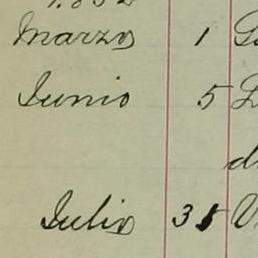 Marzo 1
Junio 5
Julio 31